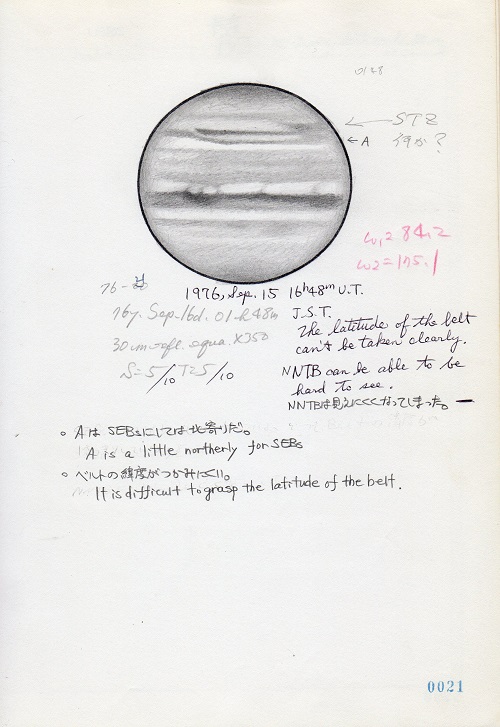 0128
← STZ
← A 何か？
ω1 = 84.2
ω2 = 175.1
76-
1976, Sep. 15 16h48m U.T.
76y. Sep. 16d. 01h 48m J.S.T.
30cm refl. equa. X350
S=5/10 T=5/10
The latitude of the belt
can't be taken clearly.
NNTB can be able to be
hard to see.
NNTBは見えにくくなってしまった。
○ Aは SEBsにしては北寄りだ。
A is a little northerly for SEBs
○ ベルトの緯度がつかみにくい。
It is difficult to grasp the latitude of the belt.
0021